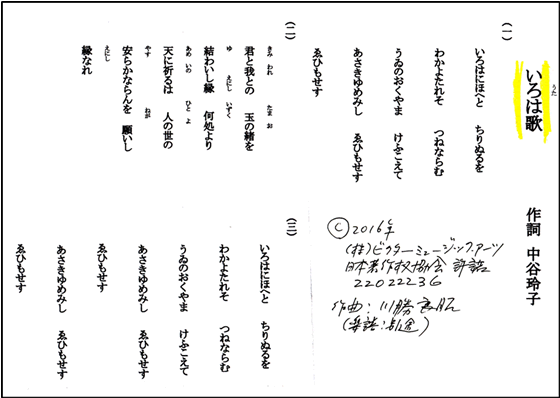 いろは歌
うた
作詞 中谷玲子
(一)
いろはにほへと ちりぬるを
わかよたれそ つねならむ
うゐのおくやま けふこえて
あさきゆめみし ゑひもせす
ゑひもせす
(二)
君と我との 玉の緒を
きみ われ たま お
結わいし縁 何処より
ゆ えにし いずく
天に祈るは 人の世の
あめ いの ひと よ
安らかならんを 願いし
やす ねが
縁なれ
えにし
(三)
いろはにほへと ちりぬるを
わかよたれそ つねならむ
うゐのおくやま けふこえて
あさきゆめみし ゑひもせす
ゑひもせす
あさきゆめみし ゑひもせす
ゑひもせす
Ⓒ 2016年
(株)ビクターミュージックアーツ
日本著作权協会 許諾
22022236
作曲:川勝